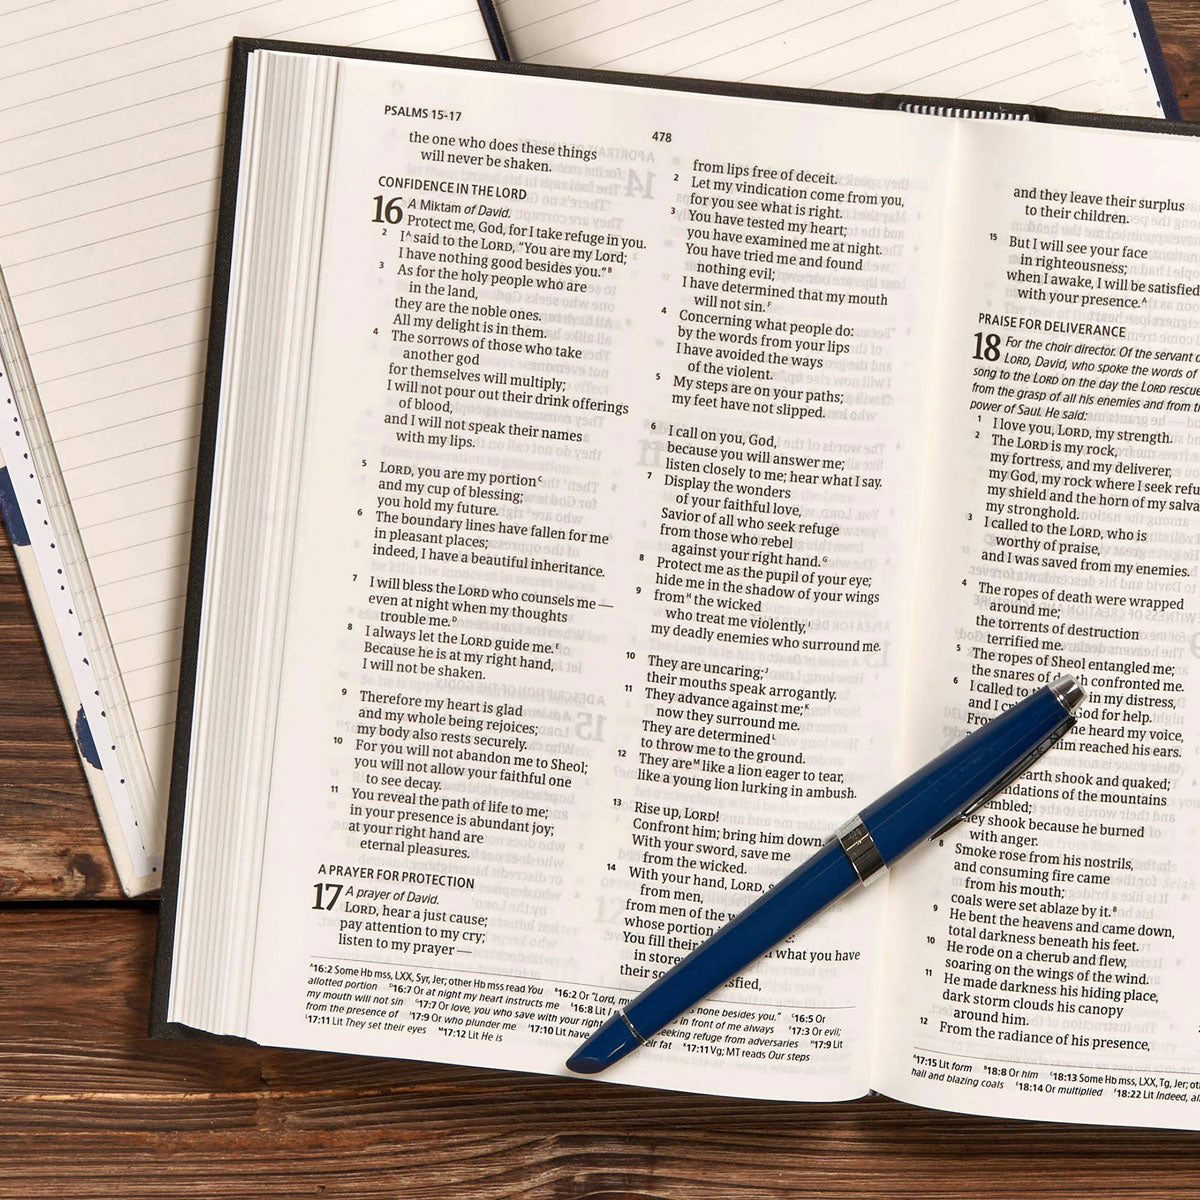 PSALMS 15-17
478
the one who does these things
will never be shaken.
CONFIDENCE IN THE LORD
16 A Miktam of David.
Protect me, God, for I take refuge in you.
2 I^A said to the LORD, “You are my Lord;
I have nothing good besides you.”^B
3 As for the holy people who are
in the land,
they are the noble ones.
All my delight is in them.
4 The sorrows of those who take
another god
for themselves will multiply;
I will not pour out their drink offerings
of blood,
and I will not speak their names
with my lips.
5 LORD, you are my portion^C
and my cup of blessing;
you hold my future.
6 The boundary lines have fallen for me
in pleasant places;
indeed, I have a beautiful inheritance.
7 I will bless the LORD who counsels me —
even at night when my thoughts
trouble me.^D
8 I always let the LORD guide me.^E
Because he is at my right hand,
I will not be shaken.
9 Therefore my heart is glad
and my whole being rejoices;
my body also rests securely.
10 For you will not abandon me to Sheol;
you will not allow your faithful one
to see decay.
11 You reveal the path of life to me;
in your presence is abundant joy;
at your right hand are
eternal pleasures.
A PRAYER FOR PROTECTION
17 A prayer of David.
LORD, hear a just cause;
pay attention to my cry;
listen to my prayer —
from lips free of deceit.
2 Let my vindication come from you,
for you see what is right.
3 You have tested my heart;
you have examined me at night.
You have tried me and found
nothing evil;
I have determined that my mouth
will not sin.^F
4 Concerning what people do:
by the words from your lips
I have avoided the ways
of the violent.
5 My steps are on your paths;
my feet have not slipped.
6 I call on you, God,
because you will answer me;
listen closely to me; hear what I say.
7 Display the wonders
of your faithful love,
Savior of all who seek refuge
from those who rebel
against your right hand.^G
8 Protect me as the pupil of your eye;
hide me in the shadow of your wings
9 from^H the wicked
who treat me violently,^I
my deadly enemies who surround me.
10 They are uncaring;^J
their mouths speak arrogantly.
11 They advance against me;^K
now they surround me.
They are determined^L
to throw me to the ground.
12 They are^M like a lion eager to tear,
like a young lion lurking in ambush.
13 Rise up, LORD!
Confront him; bring him down.
With your sword, save me
from the wicked.
14 With your hand, LORD,
from men,
from men of the
whose portion
You fill their what you have
in
their
^A16:2 Some Hb mss, LXX, Syr, Jer; other Hb mss read You ^B16:2 Or “Lord, none besides you.” ^C16:5 Or
allotted portion ^D16:7 Or at night my heart instructs me ^E16:8 Lit I in front of me always ^F17:3 Or evil;
my mouth will not sin ^G17:7 Or love, you who save with your right seeking refuge from adversaries ^H17:9 Lit
from the presence of ^I17:9 Or who plunder me ^J17:10 Lit have fat ^K17:11 Vg; MT reads Our steps
^L17:11 Lit They set their eyes ^M17:12 Lit He is
and they leave their surplus
to their children.
15 But I will see your face
in righteousness;
when I awake, I will be satisfied
with your presence.^A
PRAISE FOR DELIVERANCE
18 For the choir director. Of the servant
LORD, David, who spoke the words of
song to the LORD on the day the LORD
from the grasp of all his enemies and from
power of Saul. He said:
1 I love you, LORD, my strength.
2 The LORD is my rock,
my fortress, and my deliverer,
my God, my rock where I seek
my shield and the horn of my
my stronghold.
3 I called to the LORD, who is
worthy of praise,
and I was saved from my enemies.
4 The ropes of death were wrapped
around me;
the torrents of destruction
terrified me.
5 The ropes of Sheol entangled me;
the snares of confronted me.
6 I called to in my distress,
and I God for help.
heard my voice,
reached his ears.
earth shook and quaked;
of the mountains
shook because he burned
with anger.
8 Smoke rose from his nostrils,
and consuming fire came
from his mouth;
coals were set ablaze by it.^B
9 He bent the heavens and came down,
total darkness beneath his feet.
10 He rode on a cherub and flew,
soaring on the wings of the wind.
11 He made darkness his hiding place,
dark storm clouds his canopy
around him.
12 From the radiance of his presence,
^A17:15 Lit form ^B18:8 Or him ^C18:13 Some Hb mss, LXX, Tg, Jer;
hail and blazing coals 18:14 Or multiplied 18:22 Lit Indeed,